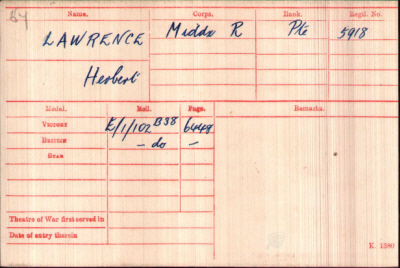 Name. Corps. Rank. Regtl. No.
LAWRENCE Middx R Pte 5918
Herbert
Medal. Roll. Page. Remarks.
Victory E/1/102 B38 6448
British - do -
Star
Theatre of War first served in
Date of entry therein
K. 1380